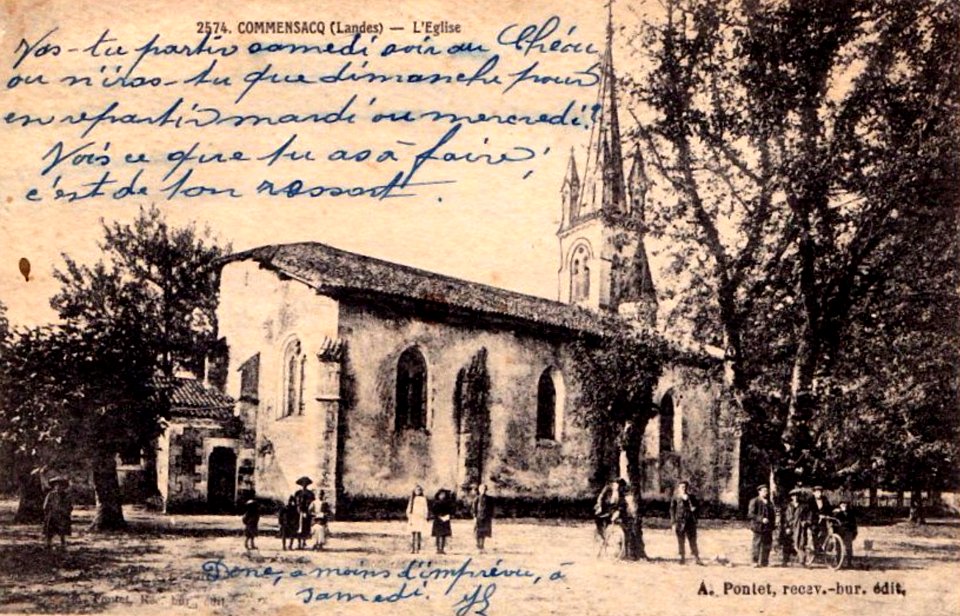 2574. COMMENSACQ (Landes) — L'Eglise
Vas-tu partir samedi soir au
ou n'iras-tu que dimanche pour
en repartir mardi ou mercredi?
Vois ce que tu as à faire,
c'est de ton ressort.
Donc, à moins d'imprévu, à
samedi.
A. Pontet, recev.-bur. édit.